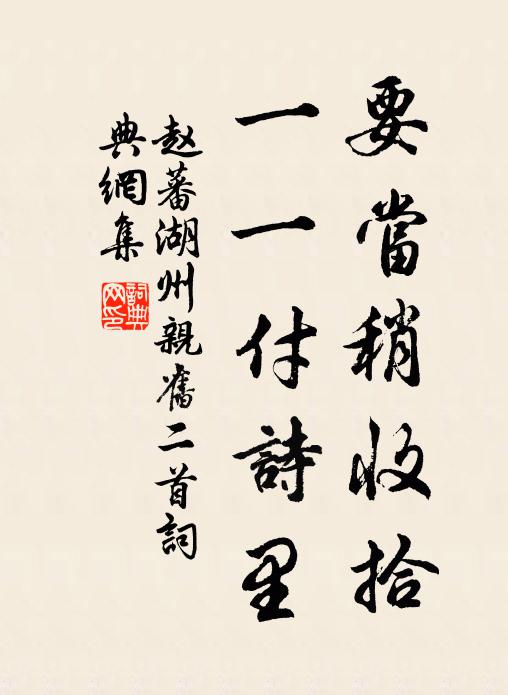 要當稍收拾
一一付詩里
赵蕃湖州親舊二首詞
典網集
詞典網印